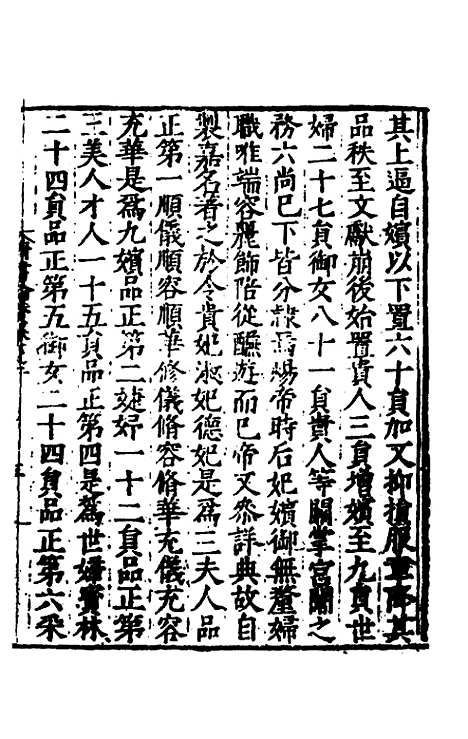 其上逼自嬪以下置六十員加又抑損服章降其
品秩至文獻崩後始置貴人三員增嬪至九員世
婦二十七員御女八十一員貴人等關掌宮闈之
務六尚已下皆分隸焉煬帝時后妃嬪御無釐婦
職唯端容麗飾陪從醼遊而已帝又參詳典故自
製嘉名著之於令貴妃淑妃德妃是為三夫人品
正第一順儀順容順華修儀脩容脩華充儀充容
充華是為九嬪品正第二婕妤一十二員品正第
三美人才人一十五員品正第四是為世婦寶林
二十四員品正第五御女二十四員品正第六采